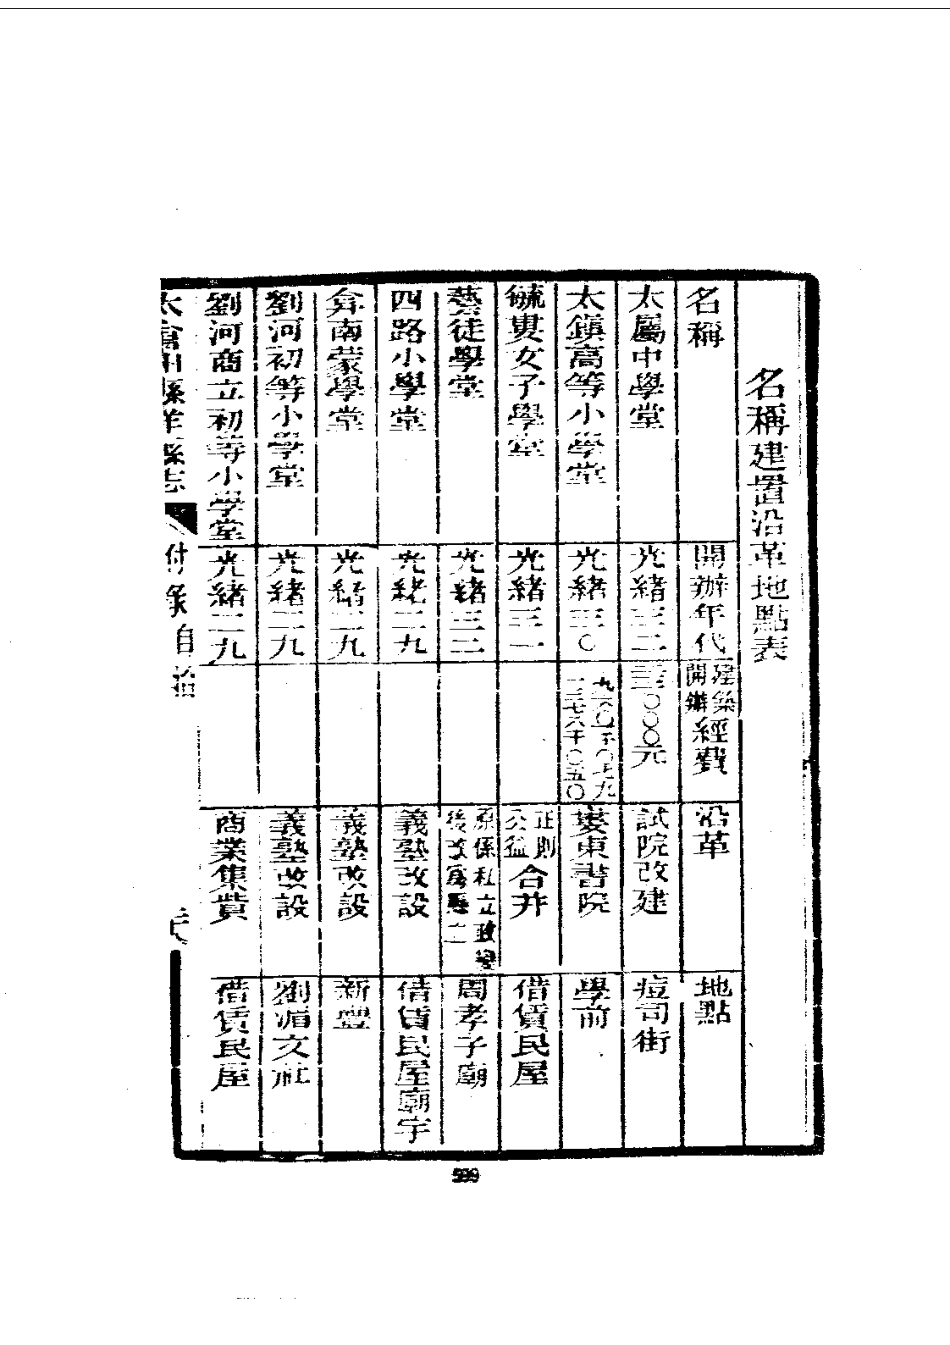 名稱建置沿革地點表
名稱 開辦年代 建築開辦經費 沿革 地點
太屬中學堂 光緒三二 三三〇〇〇元 試院改建 痘司街
太鎮高等小學堂 光緒三〇 婁東書院 學前
毓婁女子學堂 光緒三一 正則公益合并 借賃民屋
藝徒學堂 光緒三三 原係私立政變後改為縣立 周孝子廟
四路小學堂 光緒二九 義塾改設 借賃民屋廟宇
弇南蒙學堂 光緒二九 義塾改設 新豐
劉河初等小學堂 光緒二九 義塾改設 劉湄文社
劉河商立初等小學堂 光緒二九 商業集貲 借賃民屋
太倉州縣志 附錄 自治
599